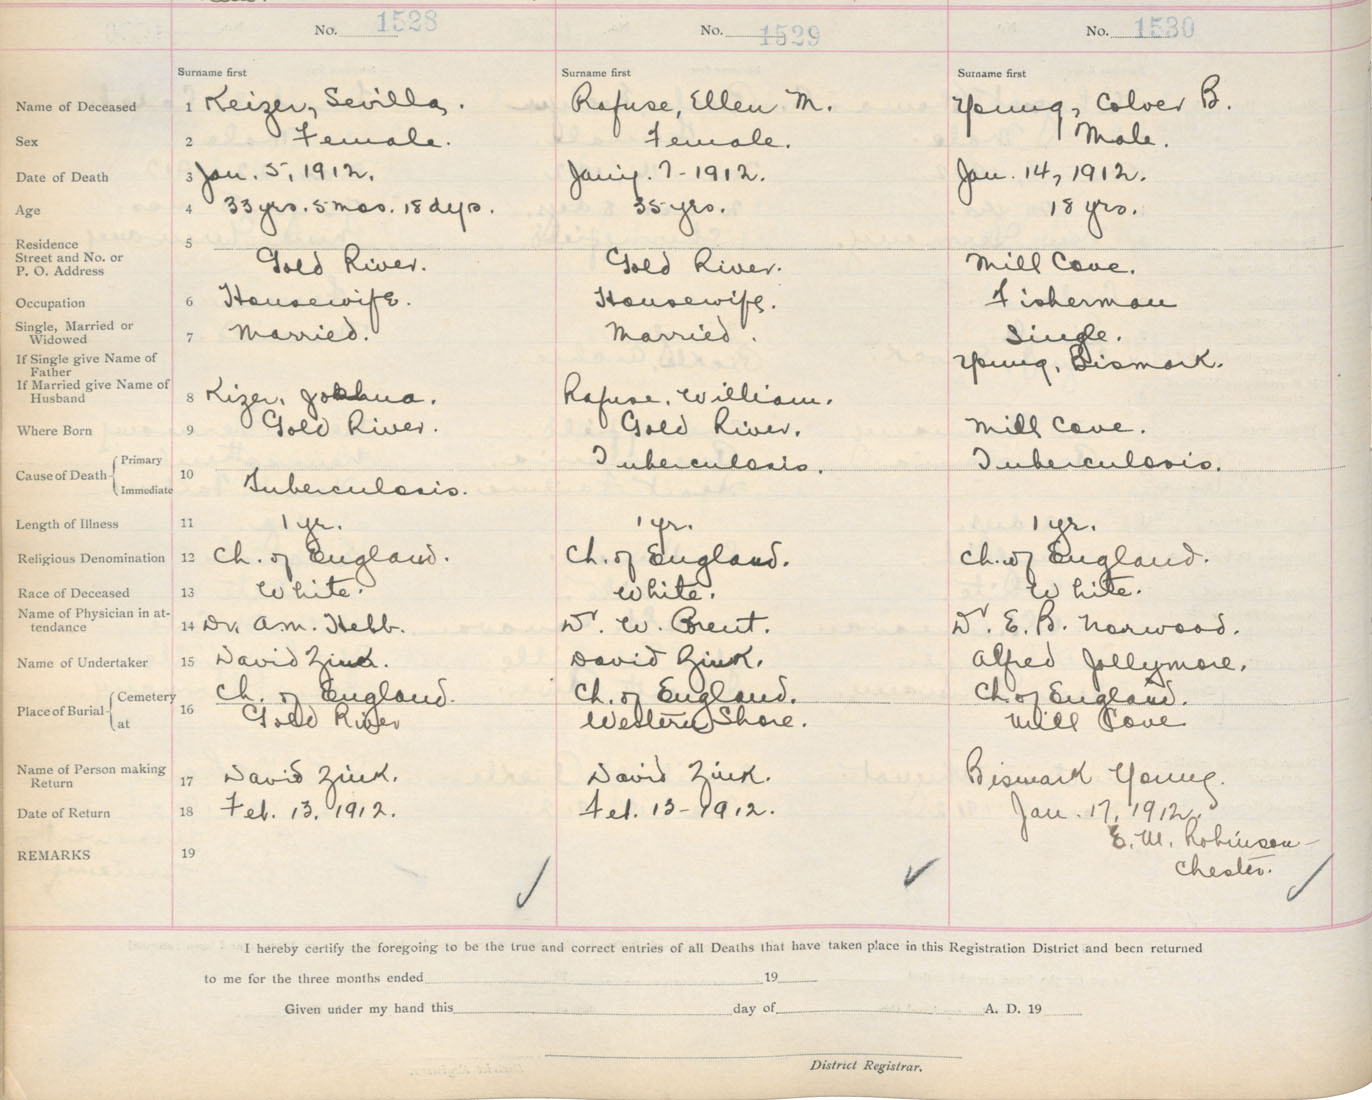 No. 1528 No. 1529 No. 1530
Surname first Surname first Surname first
Name of Deceased 1 Keizer, Sevilla. Rafuse, Ellen M. Young, Colver B.
Sex 2 Female. Female. Male.
Date of Death 3 Jan. 5, 1912. Jan'y. 7-1912. Jan. 14, 1912.
Age 4 33 yrs. 5 mos. 18 dys. 35 yrs. 18 yrs.
Residence 5
Street and No. or
P. O. Address Gold River. Gold River. Mill Cove.
Occupation 6 Housewife. Housewife. Fisherman
Single, Married or
Widowed 7 Married. Married. Single.
If Single give Name of
Father Young, Bismark.
If Married give Name of
Husband 8 Kizer, Joshua. Rafuse, William.
Where Born 9 Gold River. Gold River. Mill Cove.
Cause of Death Primary 10 Tuberculosis. Tuberculosis.
Immediate Tuberculosis.
Length of Illness 11 1 yr. 1 yr. 1 yr.
Religious Denomination 12 Ch. of England. Ch. of England. Ch. of England.
Race of Deceased 13 White. White. White.
Name of Physician in at-
tendance 14 Dr. A.M. Hebb. Dr. W. Brent. Dr. E. B. Norwood.
Name of Undertaker 15 David Zink. David Zink. Alfred Jollymore.
Place of Burial Cemetery 16 Ch. of England. Ch. of England. Ch. of England.
at Gold River Western Shore. Mill Cove
Name of Person making
Return 17 David Zink. David Zink. Bismark Young.
Date of Return 18 Feb. 13, 1912. Feb. 13-1912. Jan. 17, 1912.
E. M. Robinson-
REMARKS 19 Chester.
I hereby certify the foregoing to be the true and correct entries of all Deaths that have taken place in this Registration District and been returned
to me for the three months ended 19
Given under my hand this day of A. D. 19
District Registrar.